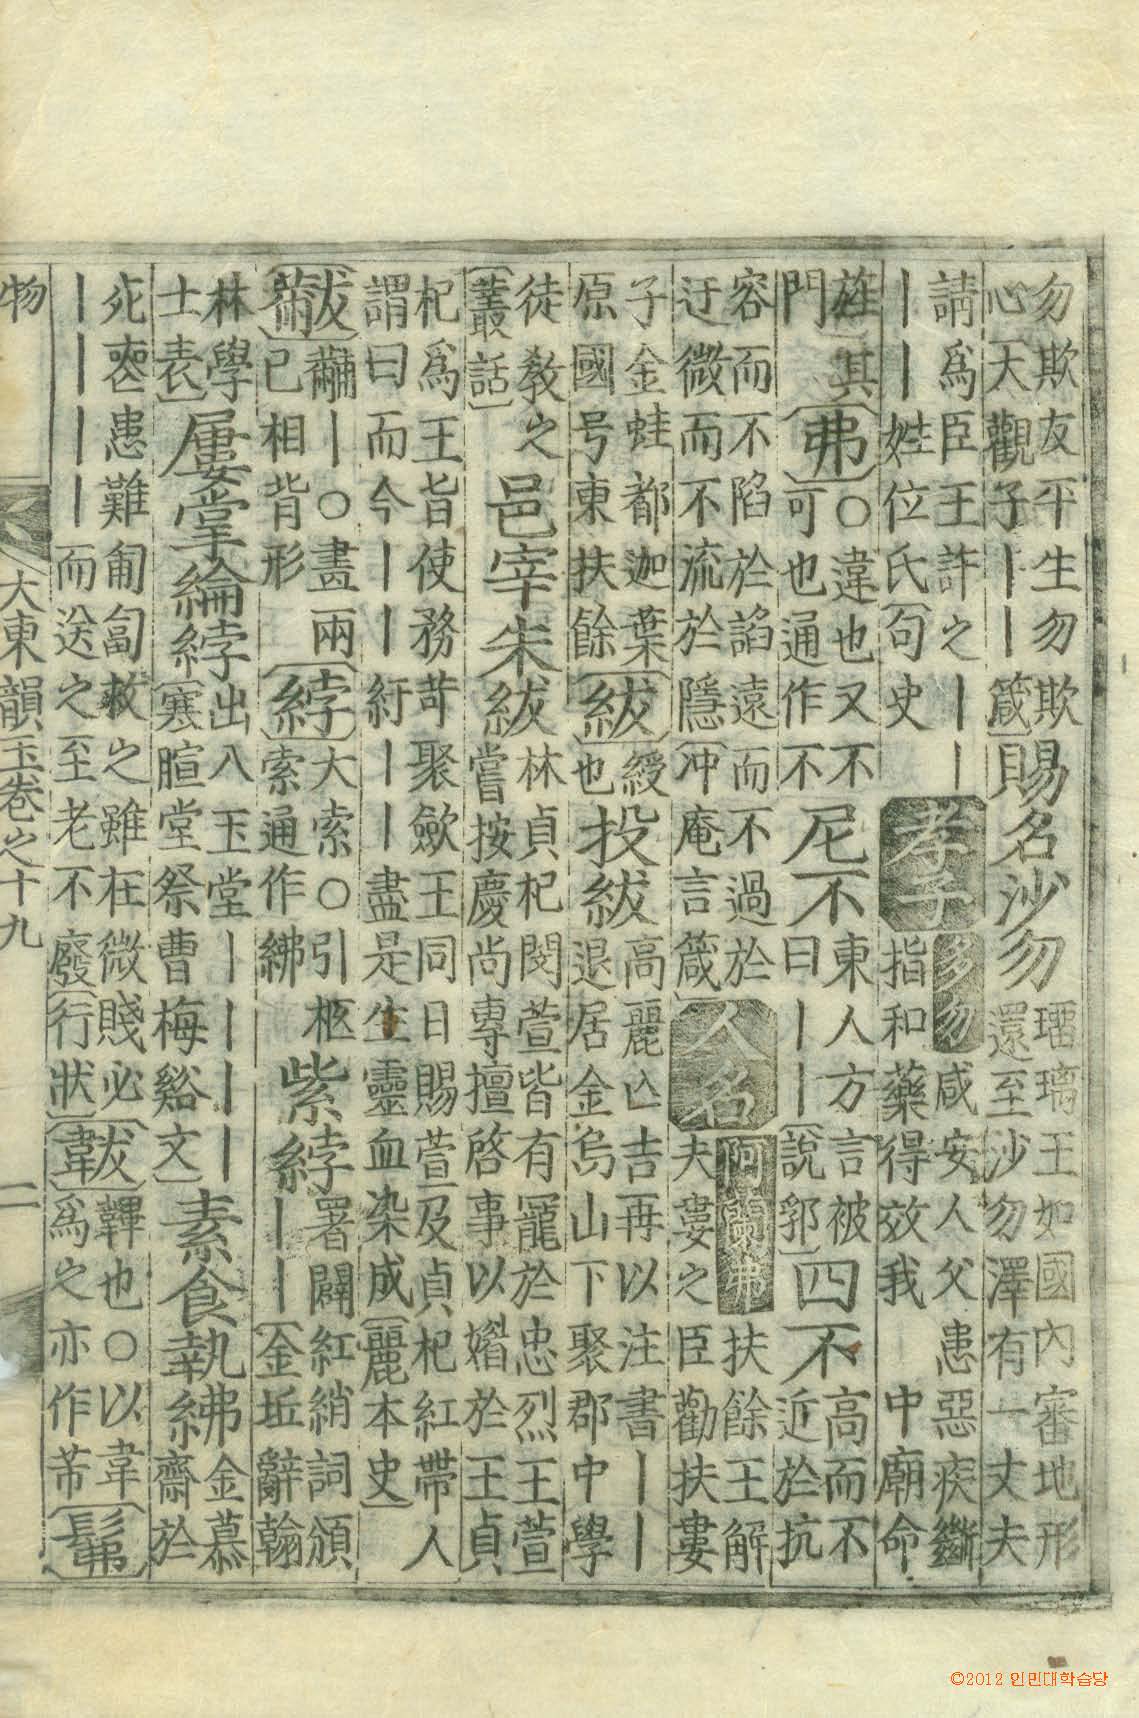 勿欺友平生勿欺
心大觀子｜｜箴賜名沙勿瑠璃王如國內審地形
還至沙勿澤有一丈夫
請爲臣王許之｜｜
｜｜姓位氏句史孝子多勿咸安人父患惡疾斷
指和藥得效我中廟命
旌其
門弗○違也又不
可也通作不尼不東人方言被
曰｜｜說郛四不高而不
近於抗
容而不陷於諂遠而不過於
迂微而不流於隱冲庵言箴人名阿蘭弗扶餘王解
夫婁之臣勸扶婁
子金蛙都迦葉
原國号東扶餘紱綬
也投紱高麗亾吉再以注書｜｜
退居金烏山下聚郡中學
徒敎之
叢話邑宰朱紱林貞杞閔萱皆有寵於忠烈王萱
嘗按慶尙專擅啓事以媚於王貞
杞爲王旨使務苛聚斂王同日賜萱及貞杞紅帶人
謂曰而今｜｜紆｜｜盡是生靈血染成麗本史
黻黼｜○畫兩
己相背形綍大索○引柩
索通作紼｜紫綍署闢紅綃詞頒
｜｜金坵辭翰
林學
士表屢掌綸綍出入玉堂｜｜｜｜
寒暄堂祭曹梅谿文素食執紼金慕
齋於
死喪患難匍匐救之雖在微賤必
｜｜｜｜而送之至老不廢行狀韍韠也○以韋
爲之亦作芾髴
物
大東韻玉卷之十九
二
©2012 인민대학습당